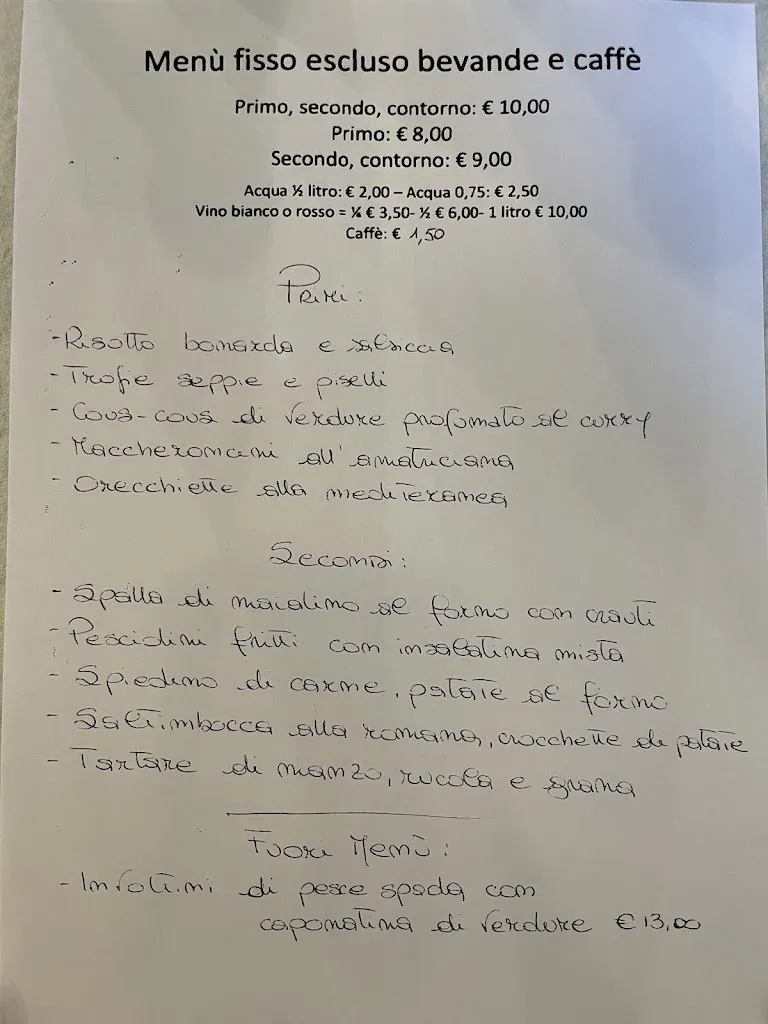 Menù fisso escluso bevande e caffè
Primo, secondo, contorno: € 10,00
Primo: € 8,00
Secondo, contorno: € 9,00
Acqua ½ litro: € 2,00 – Acqua 0,75: € 2,50
Vino bianco o rosso = ¼ € 3,50- ½ € 6,00- 1 litro € 10,00
Caffè: € 1,50
Primi:
- Risotto bonarda e salsiccia
- Trofie seppie e piselli
- Cous-cous di verdure profumato al curry
- Maccheroncini all'amatriciana
- Orecchiette alla mediteranea
Secondi:
- Spalla di maialino al forno con crauti
- Pesciolini fritti con insalatina mista
- Spiedino di carne, patate al forno
- Saltimbocca alla romana, crocchette di patate
- Tartare di manzo, rucola e grana
Fuori Menù:
- Involtini di pesce spada con
caponatina di verdure € 13,00